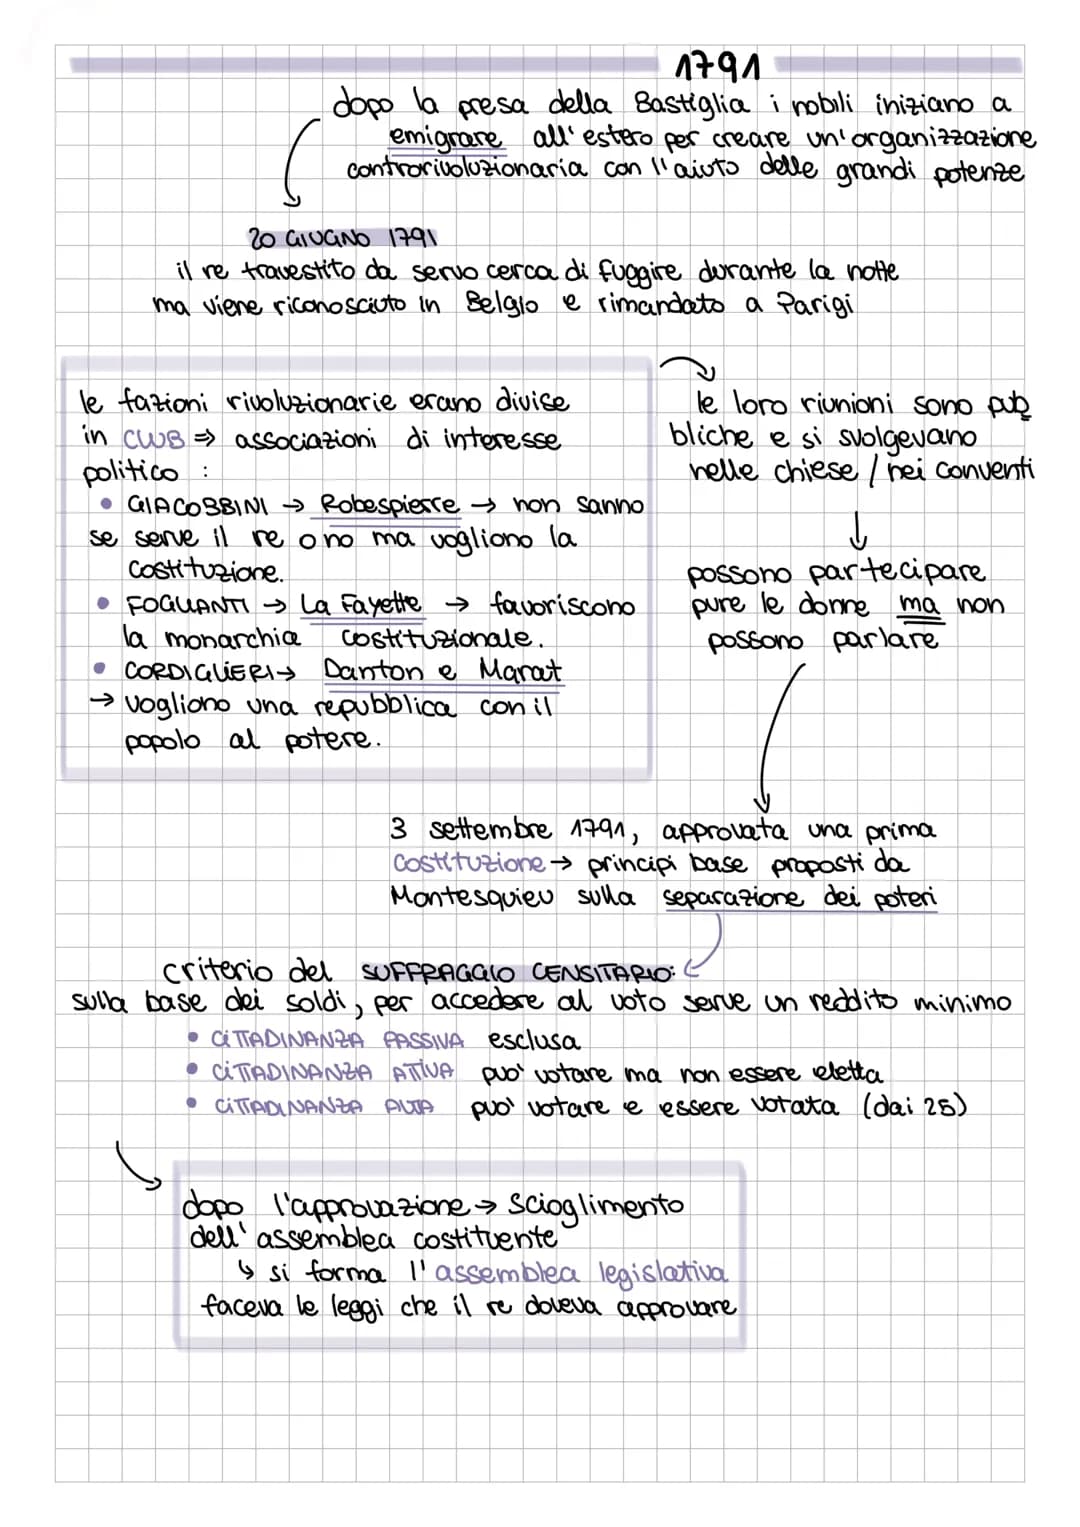 1791
dopo la presa della Bastiglia i nobili iniziano a
emigrare all'estero per creare un'organizzazione
controrivoluzionaria con l'aiuto delle grandi potenze
20 GIUGNO 1791
il re travestito da servo cerca di fuggire durante la notte
ma viene riconosciuto in Belgio e rimandato a Parigi
le fazioni rivoluzionarie erano divise
in CLUB ⇒ associazioni di interesse
politico :
• GIACOBBINI → Robespierre → non sanno
se serve il re o no ma vogliono la
costituzione.
• FOGLIANTI → La Fayette → favoriscono
la monarchia costituzionale.
• CORDIGLIERI → Danton e Marat
→ vogliono una repubblica con il
popolo al potere.
le loro riunioni sono pub
bliche e si svolgevano
nelle chiese / nei conventi
↓
possono partecipare
pure le donne ma non
possono parlare
3 settembre 1791, approvata una prima
costituzione → principi base proposti da
Montesquieu sulla separazione dei poteri
criterio del SUFFRAGGIO CENSITARIO:
sulla base dei soldi, per accedere al voto serve un reddito minimo
• CITTADINANZA PASSIVA esclusa
• CITTADINANZA ATTIVA puo' votare ma non essere eletta
• CITTADINANZA ALTA puo' votare e essere votata (dai 25)
dopo l'approvazione → scioglimento
dell'assemblea costituente
↳ si forma l'assemblea legislativa
faceva le leggi che il re doveva approvare